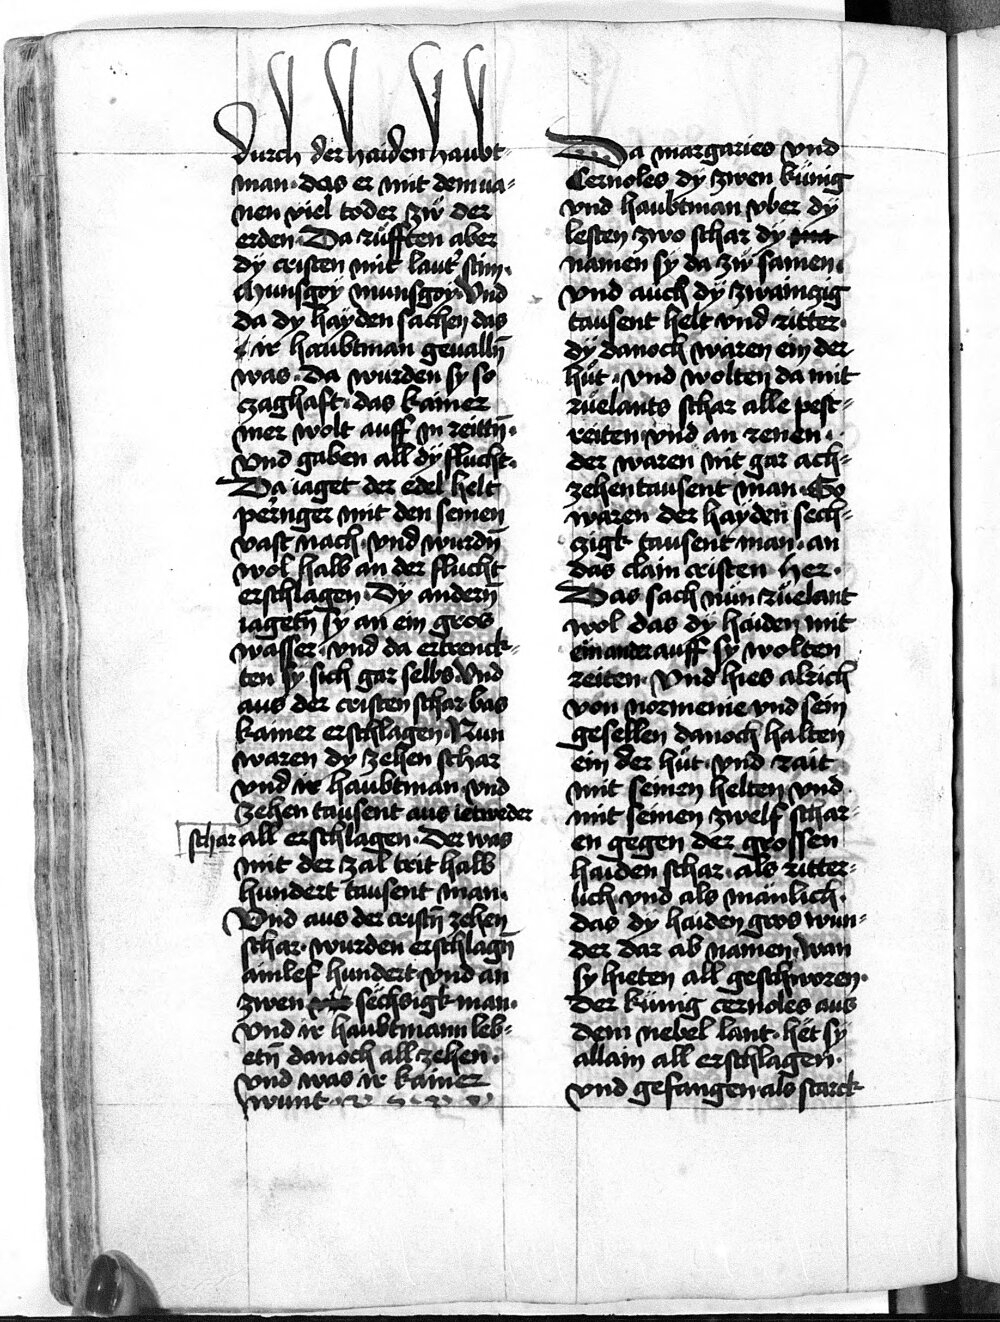 durch der haiden haubt-
man· das er mit dem va-
nen viel toder zẅ der
erden· Da rüfften aber
dÿ cristen mit laut' stim·
Munsgoÿ munsgoÿ· Vnd
da dy haÿden sachen das
ir haubtman gevalln̄
was· Da wurden sy so
zaghaft· das kainer
mer wolt auff in reittn̄·
vnd gaben all dÿ flucht·
Da iaget der edel helt
peringer mit den seinen
vast nach· vnd wurdn̄
wol halb an der flucht
erschlagen· Dÿ andern̄
iagetn̄ sÿ an ein gros
wasser· vnd da ertrenck-
ten sÿ sich gar selbs· Vnd
aus der cristen schar bas
kainer erschlagen· Nun
waren dy zehen schar
vnd ir haubtman vnd
zehen tausent aus ietweder
schar all erschlagen· Der was
mit der zal trit halb
hundert tausent man·
Vnd aus der cristn̄ zehen
schar· wurden erschlagn̄
ainlef hundert vnd an
zwen sëchsigk man·
vnd ir haubtmann leb-
etn̄ danoch all zehen·
vnd was ir kainer
wunt·
Da margaries vnd
Cernoles dÿ zwen künig
vnd haubtman vber dÿ
lesten zwo schar dÿ
namen sy da zẅ samen·
vnd auch dÿ zwainczig
tausent helt vnd ritter·
dÿ danoch waren ein der
hüt· vnd wolten da mit
rüelants schar alle pest-
reiten vnd an renen·
der waren nit gar ach-
zehentausent man· So
waren der hayden sech-
zigk tausent man· an
das clain cristen her·
Das sach nün rüelant
wol das dÿ haiden mit
einander auff sy wolten
reiten· Vnd hies alrich
von normenie vnd sein
gesellen danoch halten
ein der hüt· vnd rait
mit seinen helten vnd
mit seinen zwelf schar-
en gegen der grossen
haiden schar· als ritter-
lich vnd als mänlich·
das dy haiden gros wun-
der dar ab namen· wan
sy hieten all geschworen·
Der künig cernoles aus
dem nebel lant· hët sÿ
allain all erschlagen·
vnd gefangen als starck